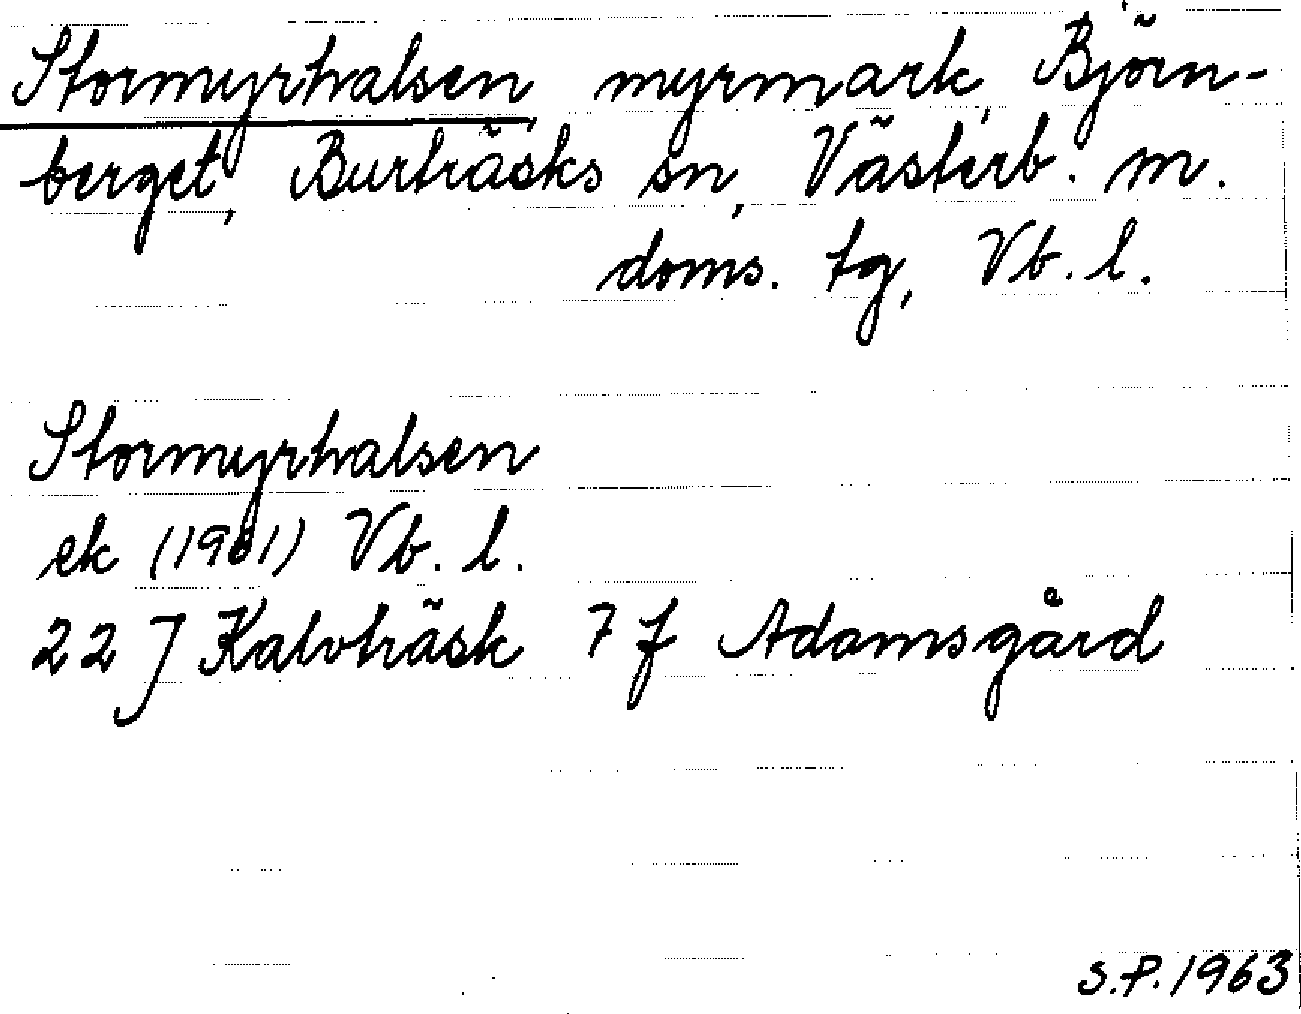 Stormyrhalsen, myrmark, Björn-
berget, Burträsks sn, Västerb. m.
doms. tg, Vb. l.
Stormyrhalsen
ek (1961) Vb. l.
22 J Kalvträsk 7 f Adamsgård
S.P. 1963